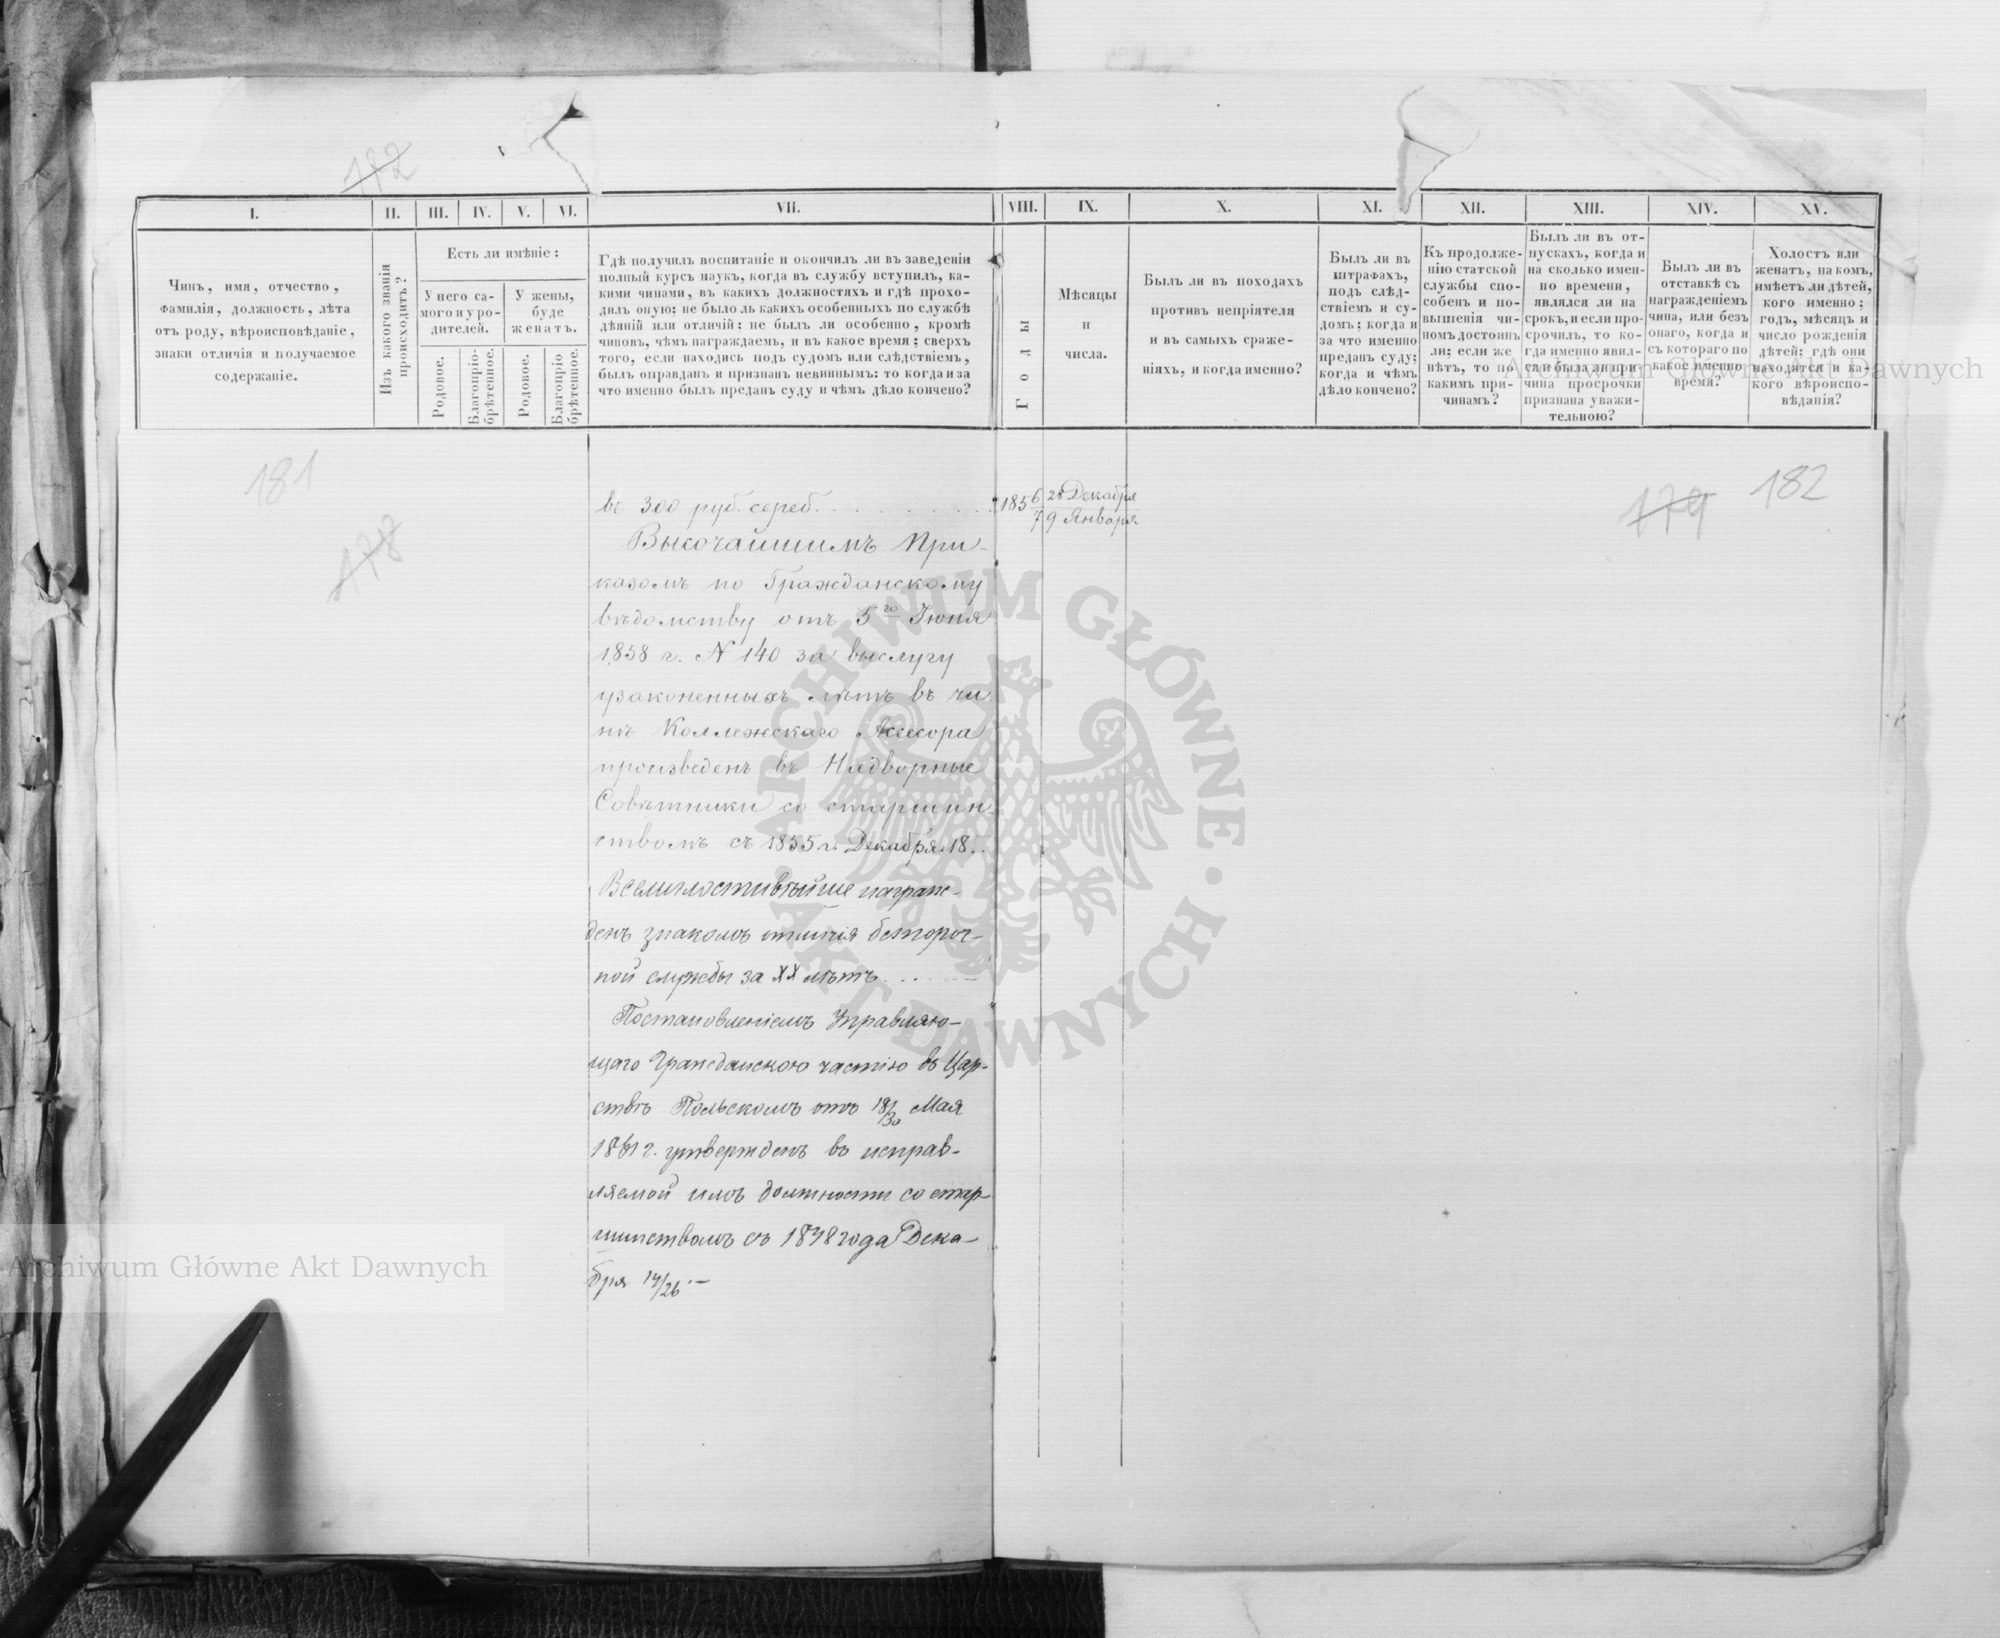 172
I.
II.
III.
IV.
V.
VI.
VII.
VIII.
IX.
X.
XI.
XII.
XIII.
XIV.
XV.
Чинъ, имя, отчество,
фамилія, должность, лѣта
отъ роду, вѣроисповѣданіе,
знаки отличія и получаемое
содержаніе.
Изъ какого званія
происходитъ?
Есть ли имѣніе:
У него са-
мого и у ро-
дителей.
У жены,
буде
женатъ.
Родовое.
Благопріо-
брѣтенное.
Родовое.
Благопріо
брѣтенное.
Гдѣ получилъ воспитаніе и окончилъ ли въ заведеніи
полный курсъ наукъ, когда въ службу вступилъ, ка-
кими чинами, въ какихъ должностяхъ и гдѣ прохо-
дилъ оную; не было ль какихъ особенныхъ по службѣ
дѣяній или отличій; не былъ ли особенно, кромѣ
чиновъ, чѣмъ награждаемъ, и въ какое время; сверхъ
того, если находясь подъ судомъ или слѣдствіемъ,
былъ оправданъ и признанъ невиннымъ: то когда и за
что именно былъ преданъ суду и чѣмъ дѣло кончено?
Годы
Мѣсяцы
и
числа.
Былъ ли въ походахъ
противъ непріятеля
и въ самыхъ сраже-
ніяхъ, и когда именно?
Былъ ли въ
штрафахъ,
подъ слѣд-
ствіемъ и су-
домъ; когда и
за что именно
преданъ суду;
когда и чѣмъ
дѣло кончено?
Къ продолже-
нію статской
службы спо-
собенъ и по-
вышенія чи-
номъ достоинъ
ли; если же
нѣтъ, то по
какимъ при-
чинамъ?
Былъ ли въ от-
пускахъ, когда и
на сколько имен-
но времени,
являлся ли на
срокъ, и если про-
срочилъ, то ко-
гда именно явил-
ся и была ли при-
чина просрочки
признана уважи-
тельною?
Былъ ли въ
отставкѣ съ
награжденіемъ
чина, или безъ
онаго, когда и
съ котораго по
какое именно
время?
Холостъ или
женатъ, на комъ,
имѣетъ ли дѣтей,
кого именно;
годъ, мѣсяцъ и
число рожденія
дѣтей; гдѣ они
находятся и ка-
кого вѣроиспо-
вѣданія?
181
178
179
182
въ 300 руб. сереб. . . . . . . . . 1856/7 28 Декабря
9 Января
Высочайшимъ При-
казомъ по Гражданскому
вѣдомству отъ 5го Іюня
1858 г. N 140 за выслугу
узаконенныхъ лѣтъ въ чи
нѣ Коллежскаго Асессора
произведенъ въ Надворные
Совѣтники со старшин-
ствомъ съ 1855 г. Декабря 18.
Всемилостивѣйше награж-
денъ знакомъ отличія безпороч-
ной службы за XX лѣтъ . . .
Постановленіемъ Управляю-
щаго Гражданскою частію въ Цар-
ствѣ Польскомъ отъ 18/30 Мая
1861 г. утвержденъ въ исправ-
ляемой имъ должности со стар-
шинствомъ съ 1848 года Дека-
бря 14/26.—
Archiwum Główne Akt Dawnych
Archiwum Główne Akt Dawnych
ARCHIWUM GŁÓWNE · AKT DAWNYCH ·